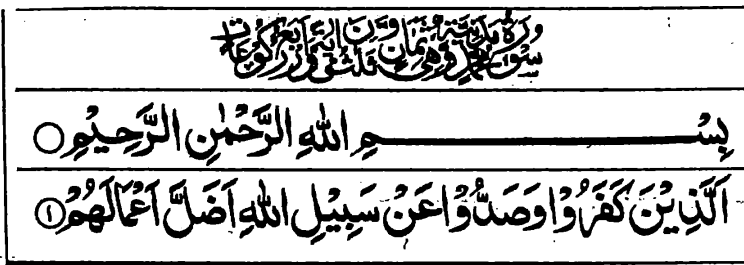 سورة محمد مدنية وهي ثمان وثلثون اية واربع ركوعات
بِسْمِ اللهِ الرَّحْمٰنِ الرَّحِيْمِ
اَلَّذِيْنَ كَفَرُوْا وَصَدُّوْا عَنْ سَبِيْلِ اللهِ اَضَلَّ اَعْمَالَهُمْ ۱